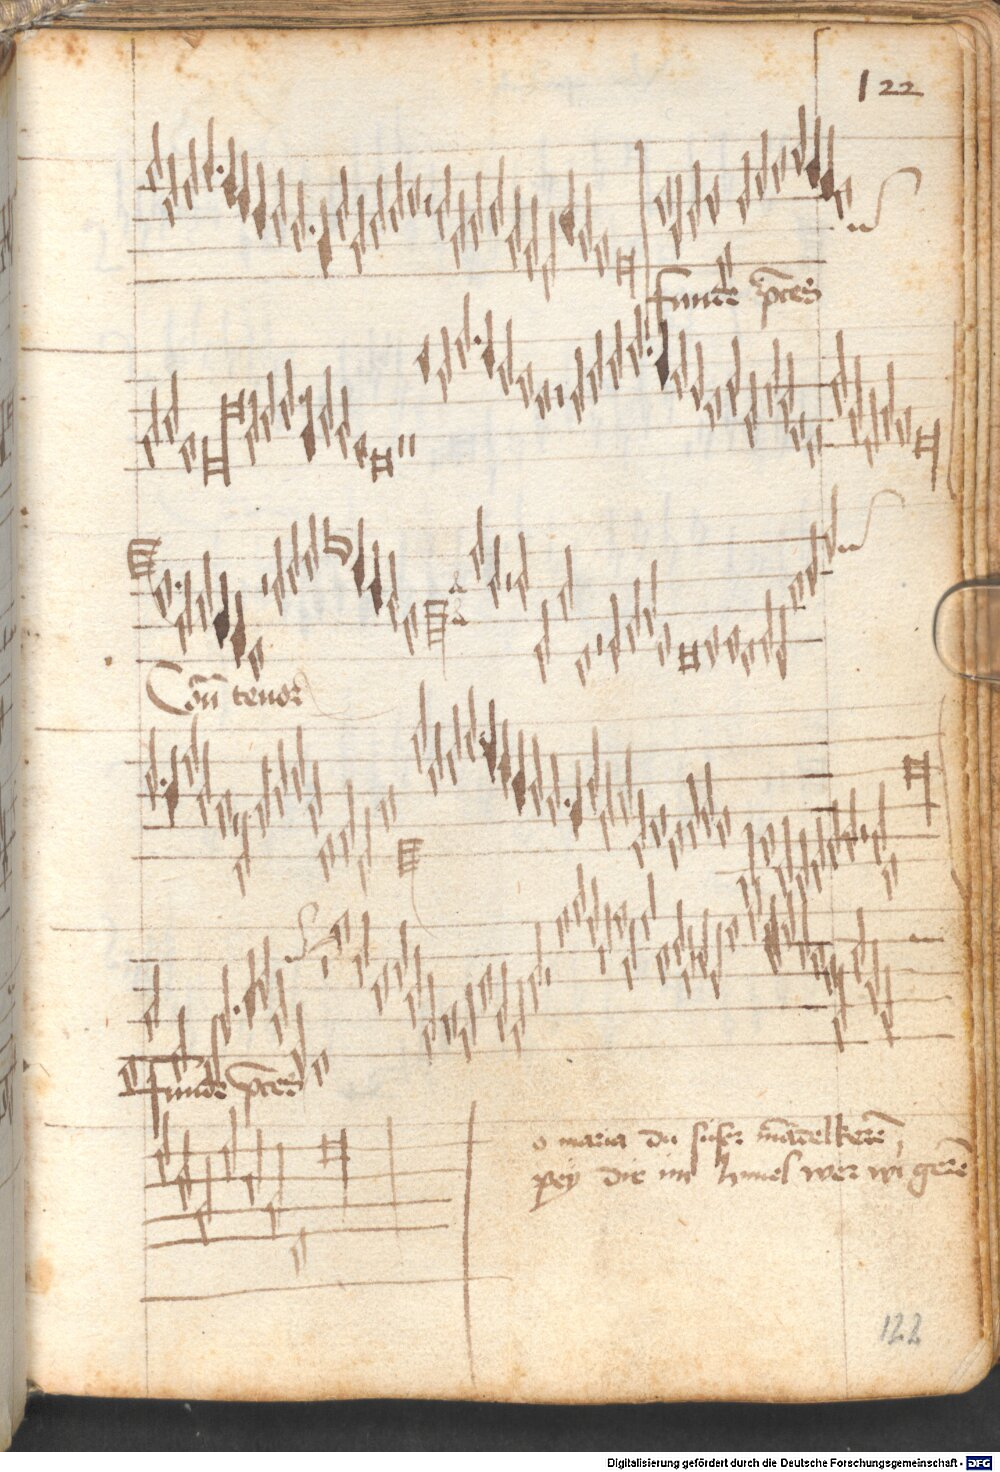 122
funde p̄ces
Con̄ tenor
funde p̄ces
o maria du suser mādelkerē,
pey dir im himel wer wi gerē
122
Digitalisierung gefördert durch die Deutsche Forschungsgemeinschaft - DFG